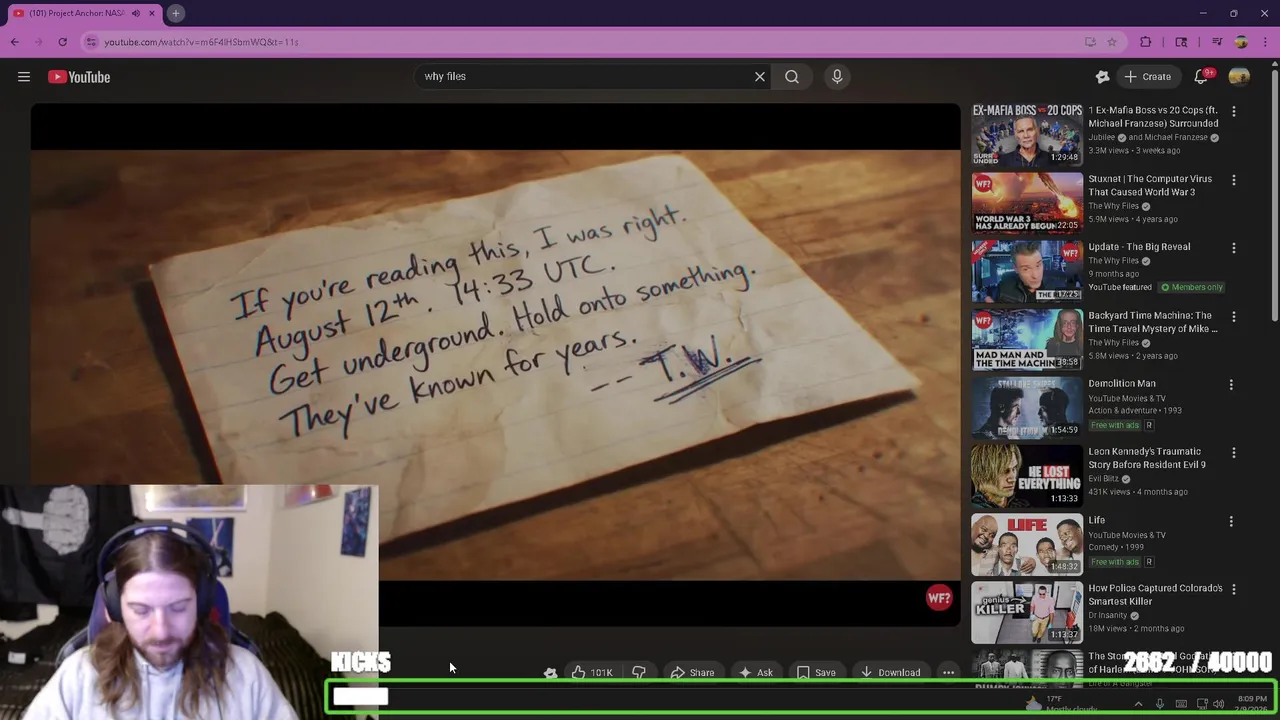 (101) Project Anchor: NASA
youtube.com/watch?v=m6F4lHSbmWQ&t=11s
YouTube
why files
Create
9+
If you're reading this, I was right.
August 12th. 14:33 UTC.
Get underground. Hold onto something.
They've known for years.
-- T.W.
WF?
101K
Share
Ask
Save
Download
EX-MAFIA BOSS vs 20 COPS
SURROUNDED
1:29:48
1 Ex-Mafia Boss vs 20 Cops (ft.
Michael Franzese) Surrounded
Jubilee and Michael Franzese
3.3M views • 3 weeks ago
WF?
WORLD WAR 3
HAS ALREADY BEGUN
22:05
Stuxnet | The Computer Virus
That Caused World War 3
The Why Files
5.9M views • 4 years ago
WF?
THE
12:25
Update - The Big Reveal
The Why Files
9 months ago
YouTube featured
Members only
WF?
MAD MAN AND
THE TIME MACHINE
38:58
Backyard Time Machine: The
Time Travel Mystery of Mike ...
The Why Files
5.8M views • 2 years ago
1:54:59
Demolition Man
YouTube Movies & TV
Action & adventure • 1993
Free with ads
R
HE LOST
EVERYTHING
1:13:33
Leon Kennedy's Traumatic
Story Before Resident Evil 9
Evil Blitz
431K views • 4 months ago
LIFE
1:48:32
Life
YouTube Movies & TV
Comedy • 1999
Free with ads
R
genius
KILLER
1:13:37
How Police Captured Colorado's
Smartest Killer
Dr Insanity
18M views • 2 months ago
KICKS
2682 / 40000
17°F
Mostly cloudy
8:09 PM
2/9/2026